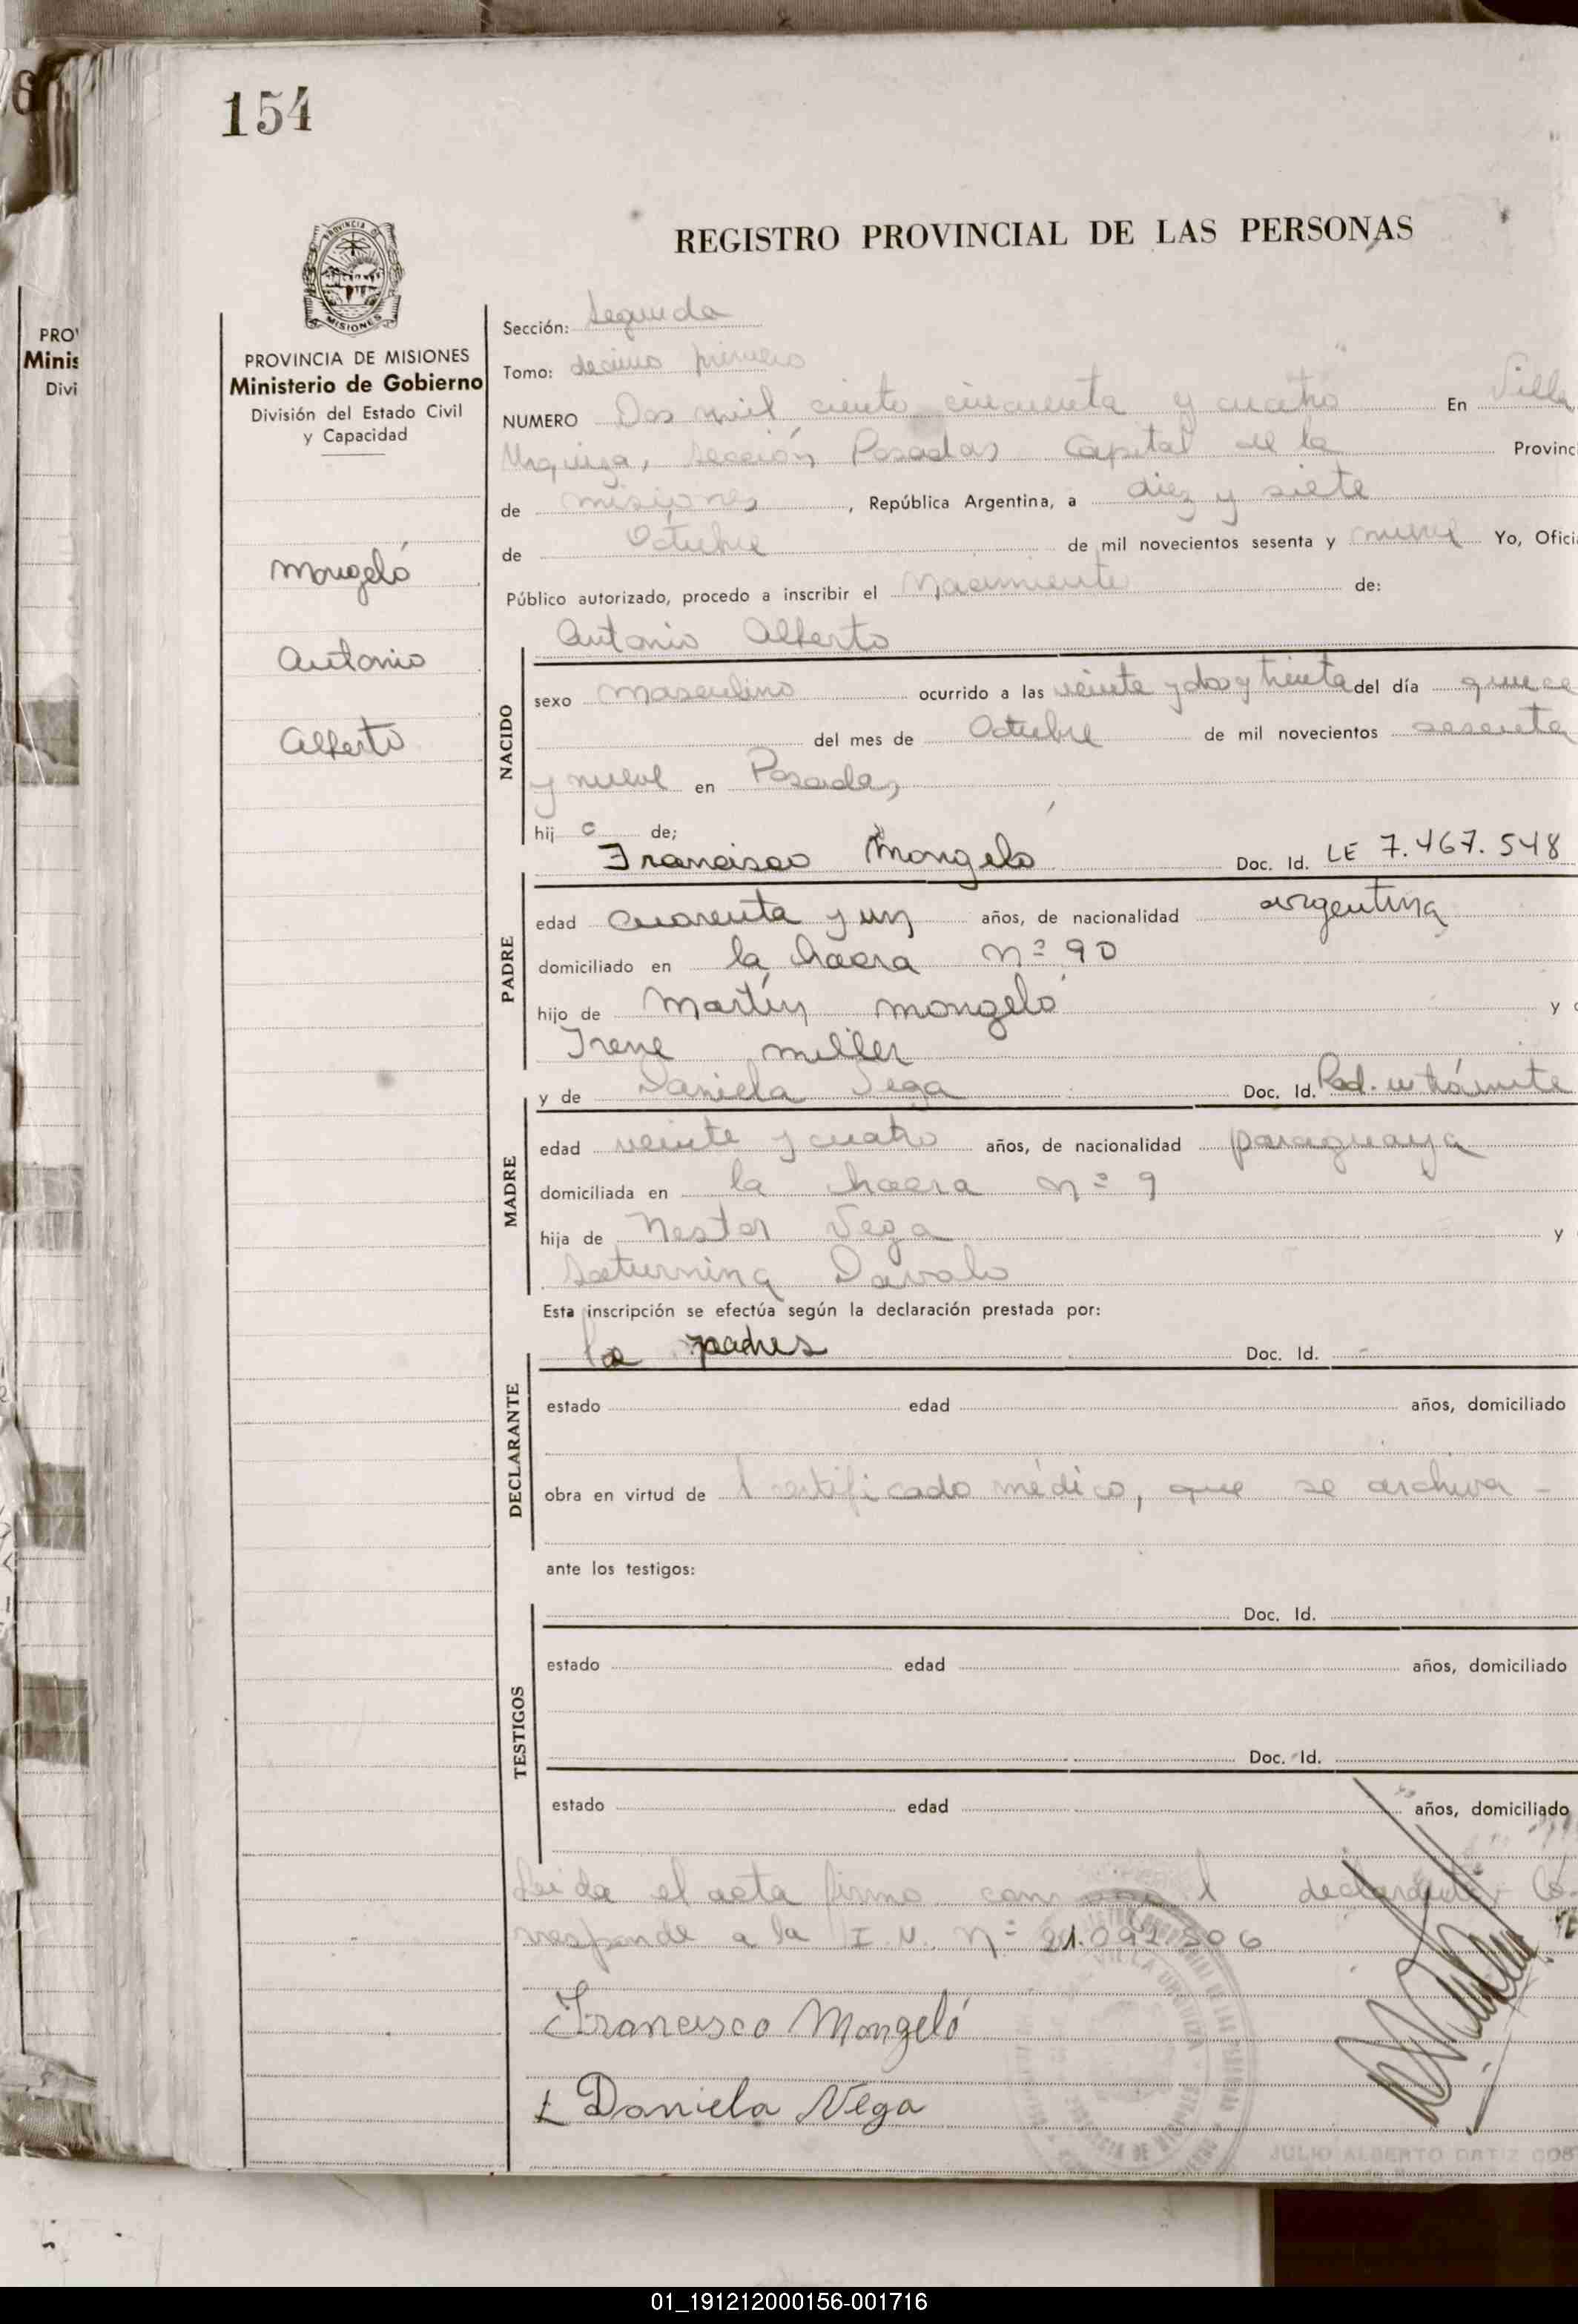 154
REGISTRO PROVINCIAL DE LAS PERSONAS
PROVINCIA DE MISIONES
Ministerio de Gobierno
División del Estado Civil
y Capacidad
Mongeló
Antonio
Alberto
Sección: Segunda
Tomo: decimo primero
NUMERO Dos mil ciento cincuenta y cuatro En Villa
Urquiza, Sección Posadas Capital de la Provinc
de misiones, República Argentina, a diez y siete
de Octubre de mil novecientos sesenta y nueve Yo, Ofici
Público autorizado, procedo a inscribir el Nacimiento de:
NACIDO
Antonio Alberto
sexo masculino ocurrido a las veinte y dos y treinta del día quince
del mes de Octubre de mil novecientos sesenta
y nueve en Posadas
hij o de;
PADRE
Francisco Mongelo Doc. Id. LE 7.467.548
edad cuarenta y un años, de nacionalidad argentina
domiciliado en la chacra nº 90
hijo de Martín mongeló y
Irene miller
MADRE
y de Daniela Vega Doc. Id. Rad. en trámite
edad veinte y cuatro años, de nacionalidad paraguaya
domiciliada en la chacra nº 9
hija de Nestor Vega y
Saturnina Davalo
Esta inscripción se efectúa según la declaración prestada por:
DECLARANTE
padres Doc. Id.
estado edad años, domiciliado
obra en virtud de certificado médico, que se archiva -
ante los testigos:
TESTIGOS
Doc. Id.
estado edad años, domiciliado
Doc. Id.
estado edad años, domiciliado
Leida el acta firma declarante Co-
rresponde a la I.N. Nº
Francisco Mongeló
Daniela Vega
VILLA URQUIZA
JULIO ALBERTO ORTIZ
PRO
Minis
Divi
01_191212000156-001716